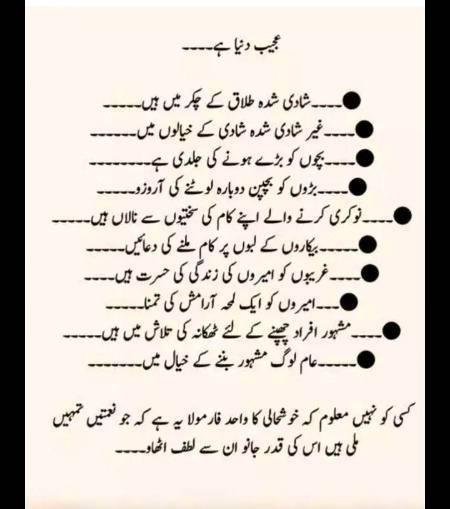 عجیب دنیا ہے۔۔۔۔
●۔۔۔۔شادی شدہ طلاق کے چکر میں ہیں۔۔۔۔۔
●۔۔۔۔غیر شادی شدہ شادی کے خیالوں میں۔۔۔۔۔۔
●۔۔۔۔بچوں کو بڑے ہونے کی جلدی ہے۔۔۔۔۔۔۔۔۔
●۔۔۔۔بڑوں کو بچپن دوبارہ لوٹنے کی آروزو۔۔۔۔۔
●۔۔۔۔نوکری کرنے والے اپنے کام کی سختیوں سے نالاں ہیں۔۔۔۔۔
●۔۔۔۔۔بیکاروں کے لبوں پر کام ملنے کی دعائیں۔۔۔۔۔
●۔۔۔۔غریبوں کو امیروں کی زندگی کی حسرت ہیں۔۔۔۔
●۔۔۔امیروں کو ایک لمحہ آرامش کی تمنا۔۔۔۔۔
●۔۔۔۔مشہور افراد چھپنے کے لئے ٹھکانہ کی تلاش میں ہیں۔۔۔۔۔
●۔۔۔۔۔عام لوگ مشہور بننے کے خیال میں۔۔۔۔۔۔۔
کسی کو نہیں معلوم کہ خوشحالی کا واحد فارمولا یہ ہے کہ جو نعمتیں تمہیں
ملی ہیں اس کی قدر جانو ان سے لطف اٹھاو۔۔۔۔